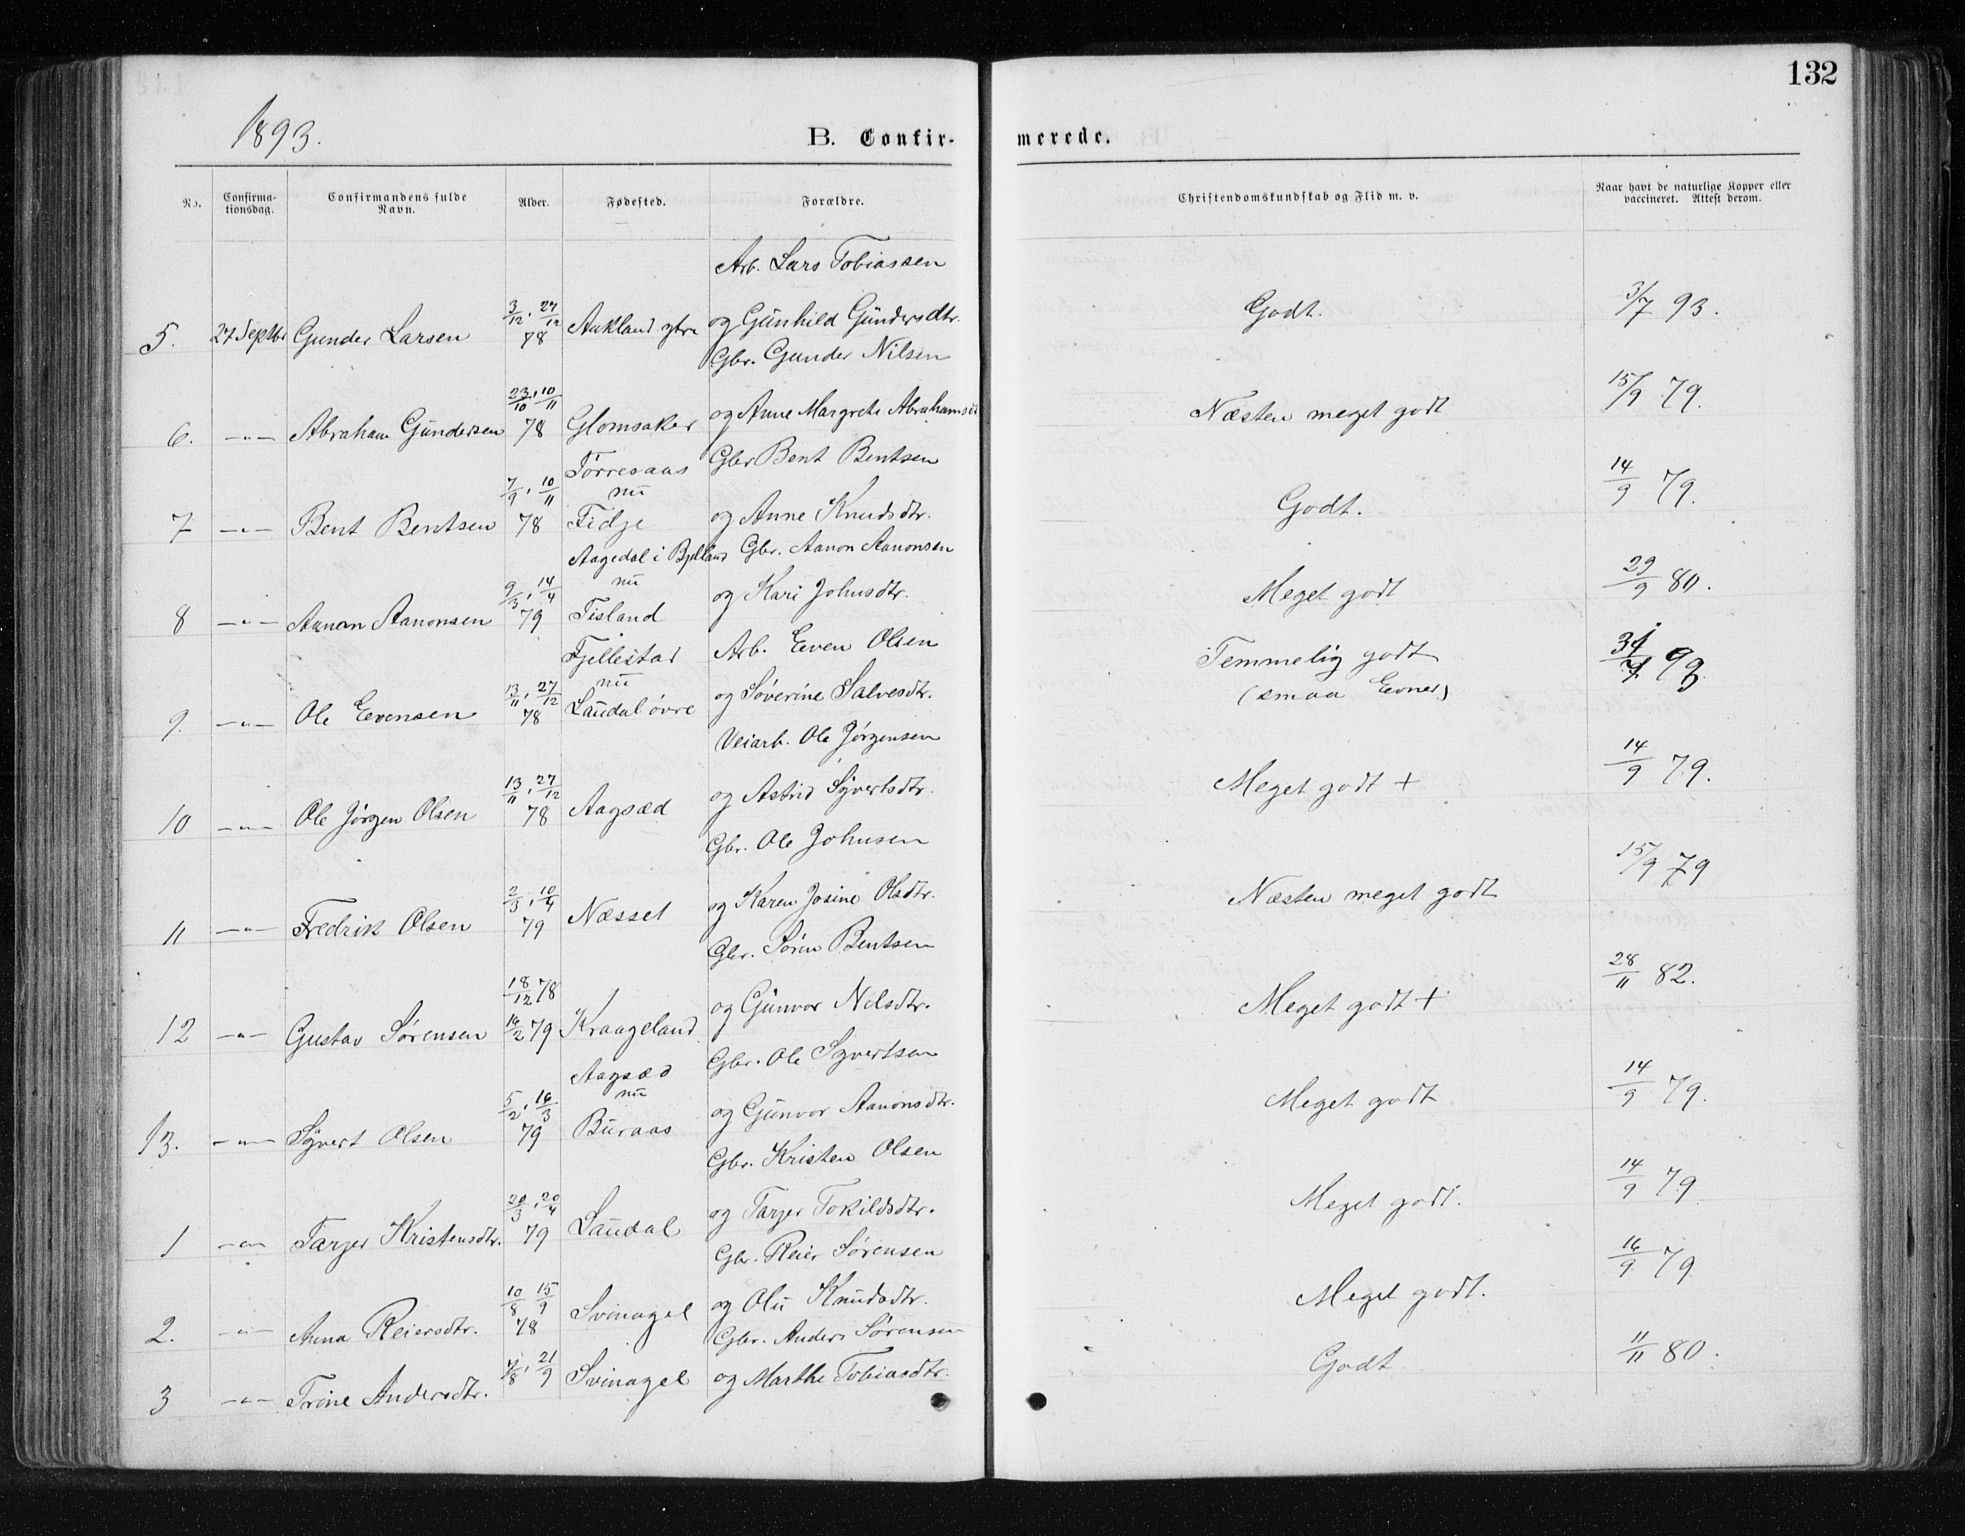 132
1893.
B. Confir- merede.
No. Confirma-tionsdag. Confirmandens fulde Navn. Alder. Fødested. Forældre. Christendomskundskab og Flid m. v. Naar havt de naturlige Kopper eller vaccineret. Attest derom.
Arb. Lars Tobiassen
5. 27 Septbr Gunder Larsen 3/12, 27/12 78 Aukland ytre og Gunhild Gundersdtr. Godt. 3/7 93.
Gbr. Gunder Nilsen
6. —"— Abraham Gundersen 23/10, 10/11 78 Glomsaker og Anne Margrete Abrahamsd Næsten meget godt 15/9 79.
Tørresaas Gbr Bent Bentsen
nu
7 —"— Bent Bentsen 7/9, 10/11 78 Fidje og Anne Knudsdtr. Godt. 14/9 79.
Aagedal i Bjelland Gbr. Aanon Aanonsen
nu
8 —"— Aanon Aanonsen 9/3, 14/4 79 Tisland og Kari Johnsdtr. Meget godt 29/9 80.
Fjellestad Arb. Even Olsen
nu
9. —"— Ole Evensen 13/11, 27/12 78 Laudal øvre og Søverine Salvesdtr. Temmelig godt (smaa Evner) 93
Veiarb. Ole Jørgensen
10 —"— Ole Jørgen Olsen 13/11, 27/12 78 Aagsæd og Astrid Syvertsdtr. Meget godt + 14/9 79.
Gbr. Ole Johnsen
11 —"— Fredrik Olsen 2/3, 10/4 79 Næsset og Karen Josine Olsdtr. Næsten meget godt 15/9 79
Gbr. Søren Bentsen
12 —"— Gustav Sørensen 18/12 78 16/2 79 Kraageland og Gunvor Nilsdtr. Meget godt + 28/11 82.
Aagsæd Gbr. Ole Syvertsen
nu
13. —"— Syvert Olsen 5/2, 16/3 79 Buraas og Gunvor Aanonsdtr. Meget godt 14/9 79.
Gbr. Kristen Olsen
1 —"— Tarjer Kristensdtr. 20/3, 20/4 79 Laudal og Tarjer Tokildsdtr. Meget godt. 14/9 79.
Gbr. Reier Sørensen
2. —"— Anna Reiersdtr. 10/8, 15/9 78 Svinagel og Olu Knudsdtr. Meget godt. 16/9 79
Gbr. Anders Sørensen
3 —"— Trine Andersdtr. 21/9 Svinagel og Marthe Tobiasdtr. Godt 11/11 80.